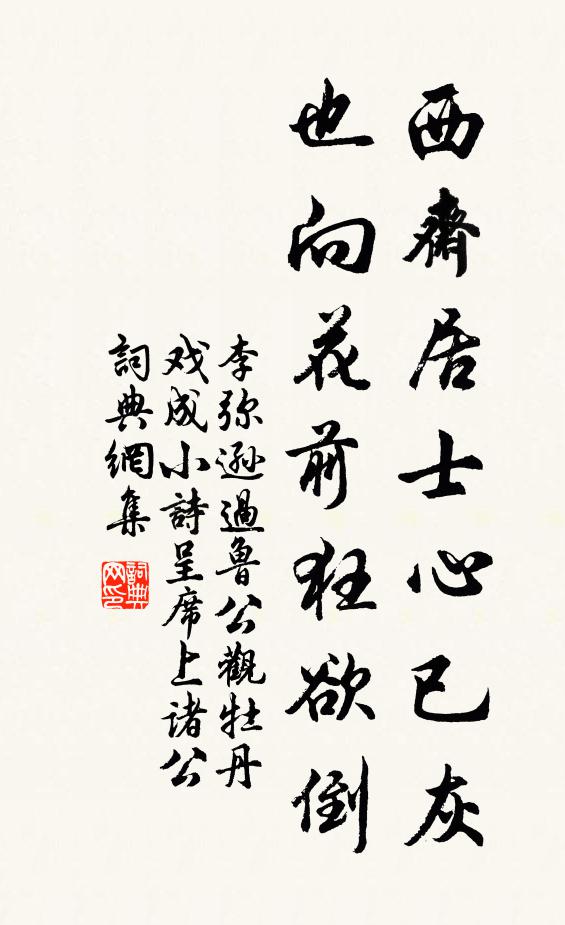 西齋居士心已灰
也向花前狂欲倒
李弥遜過魯公觀牡丹
戏成小詩呈席上诸公
詞典網集
詞典
网印